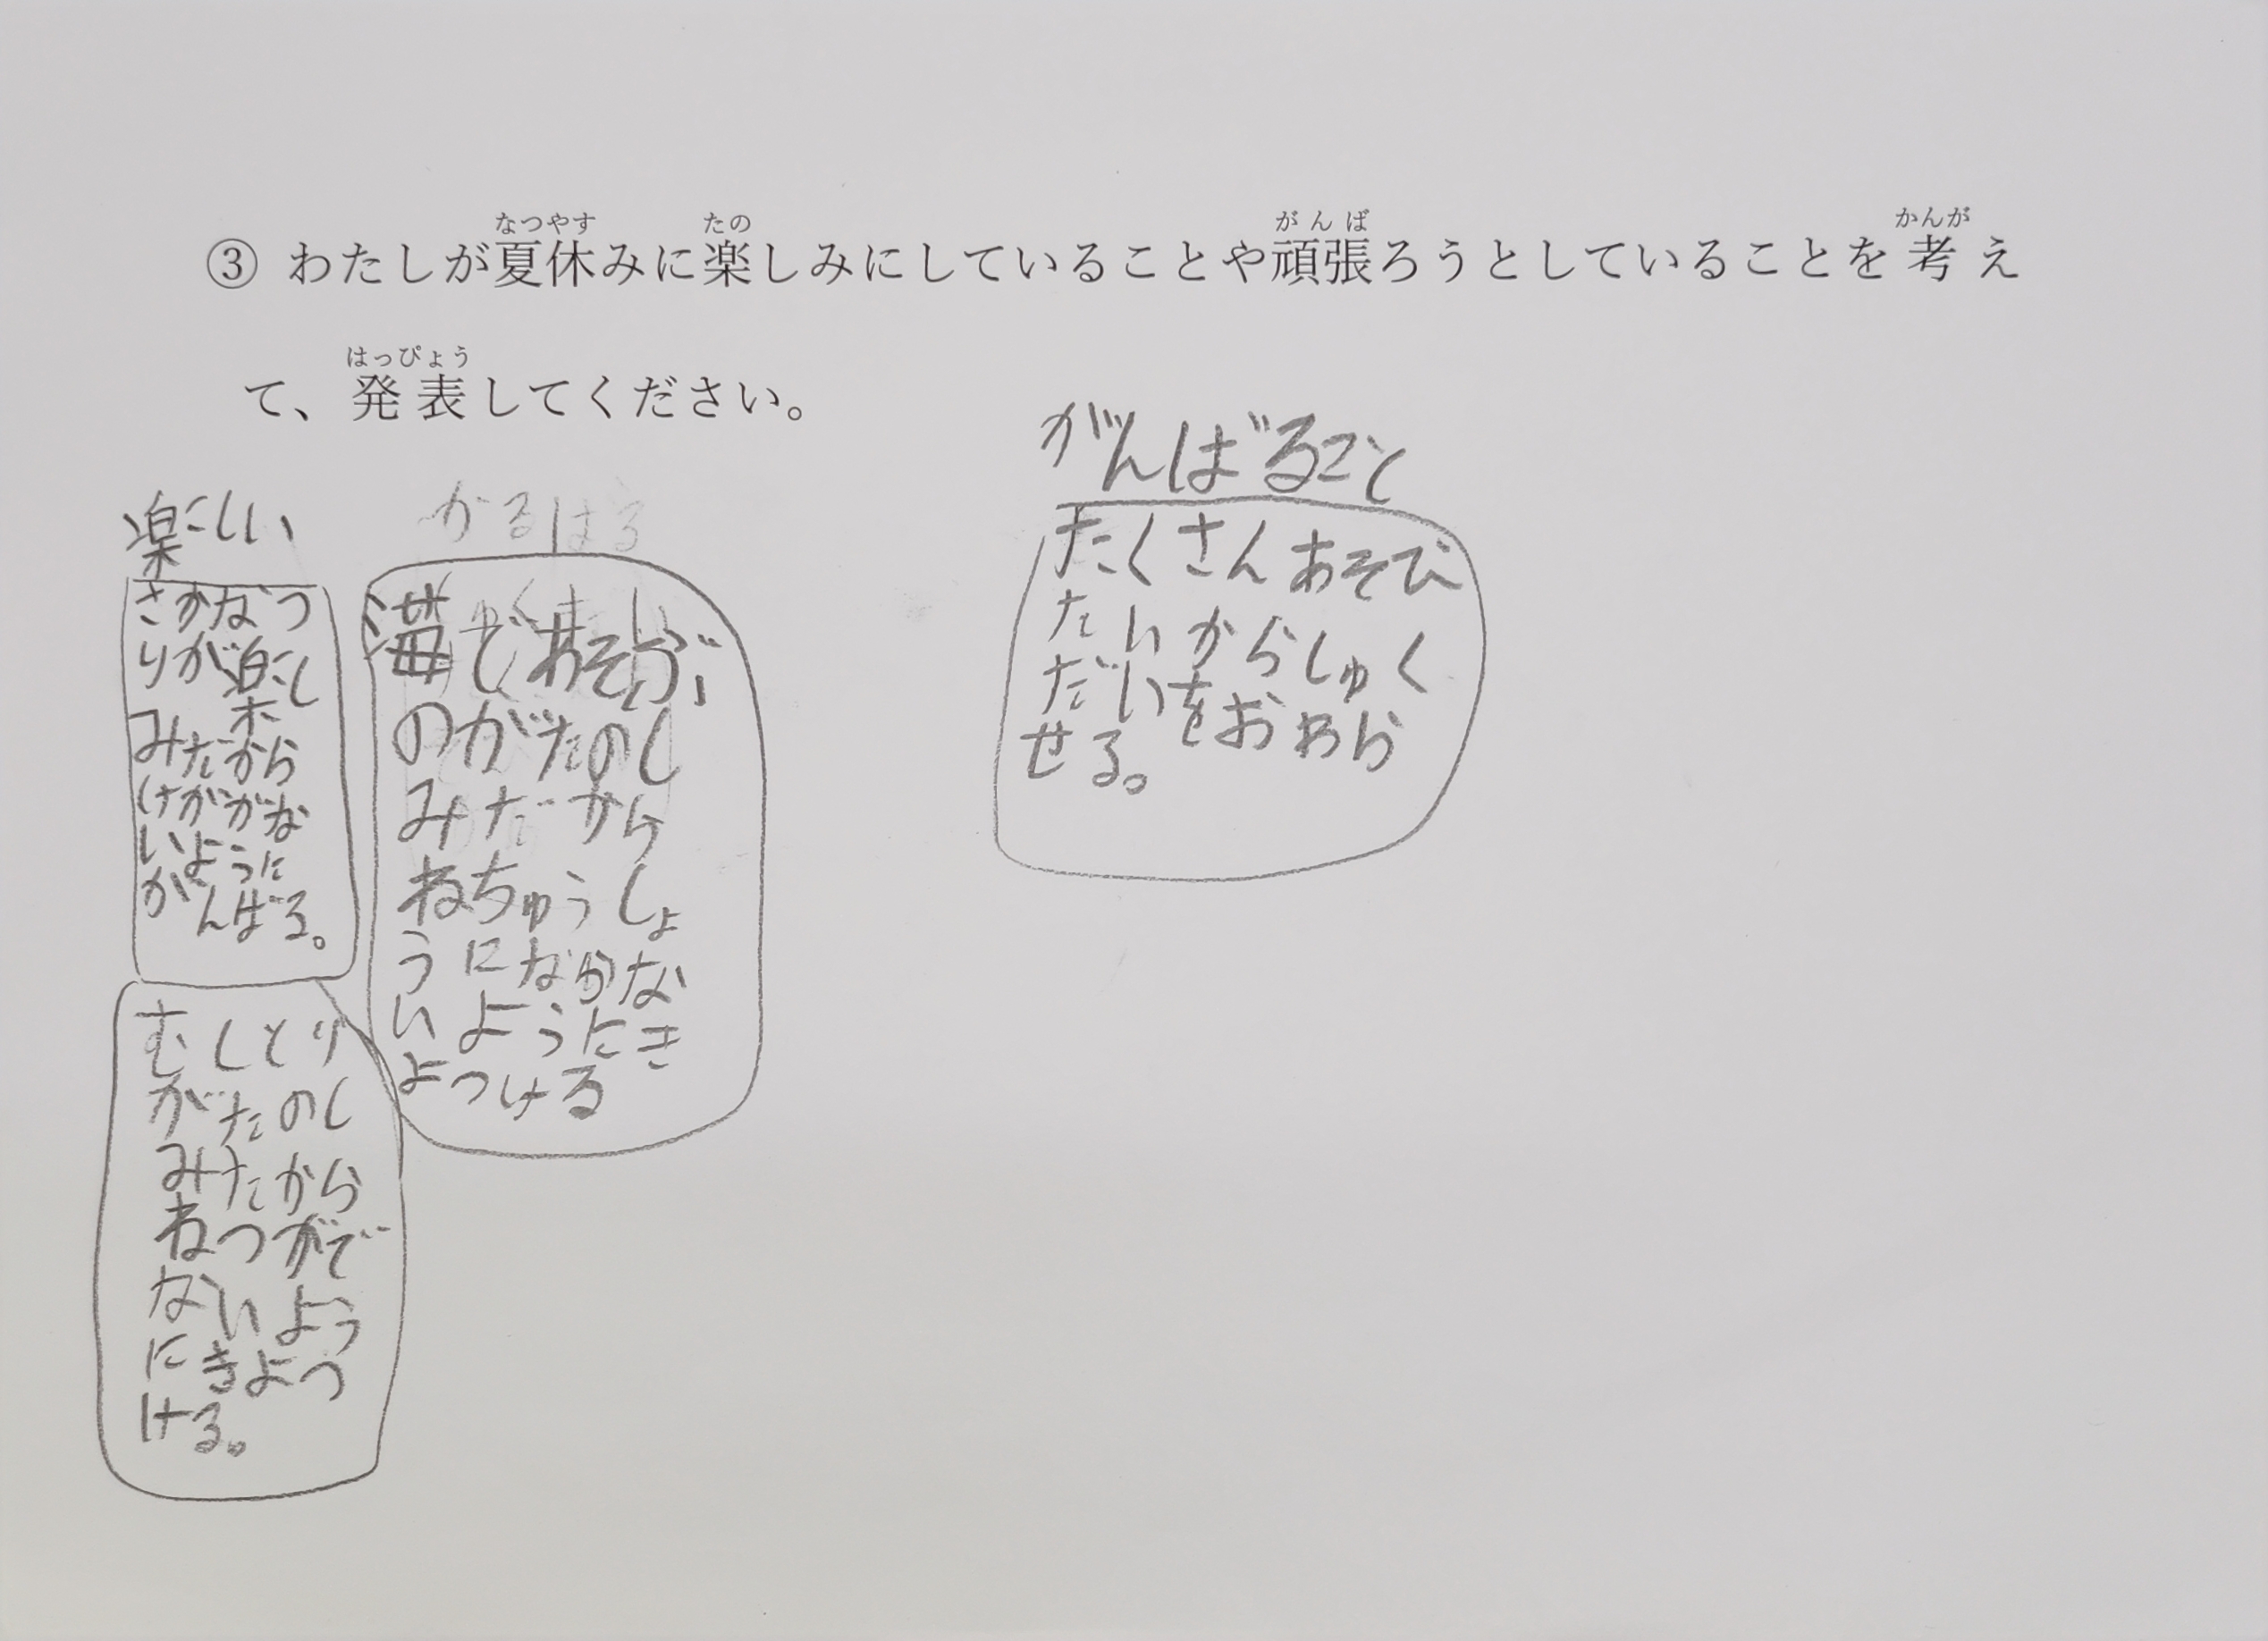 ③ わたしが夏休みに楽しみにしていることや頑張ろうとしていることを考え
て、発表してください。
楽しい
さかなつ
りが楽し
みだから
けががな
いように
がんばる。
むしとり
がたのし
みたから
ねつがで
ないよう
にきよつ
ける。
海であそぶ
のがたのし
みだから
ねちゅうしょ
うになかない
いようにき
よつける
がんばること
たくさんあそび
たいからしゅく
だいをおわら
せる。